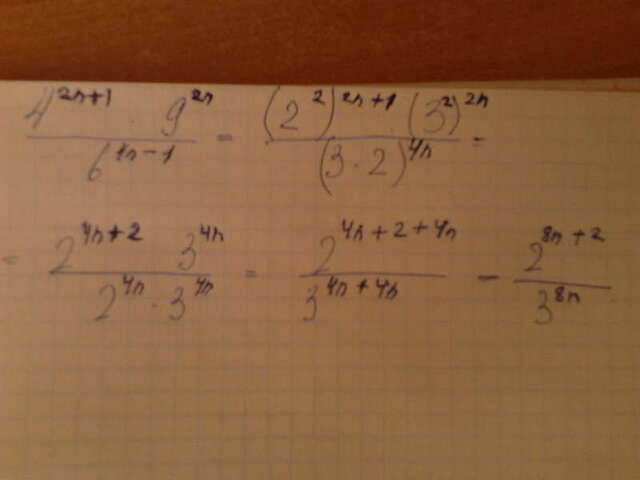 4^{2n+1} 9^{2n} / 6^{4n-1} = (2^2)^{2n+1} (3^2)^{2n} / (3·2)^{4n} =
= 2^{4n+2} 3^{4n} / 2^{4n} · 3^{4n} = 2^{4n+2+4n} / 3^{4n+4n} - 2^{8n+2} / 3^{8n}